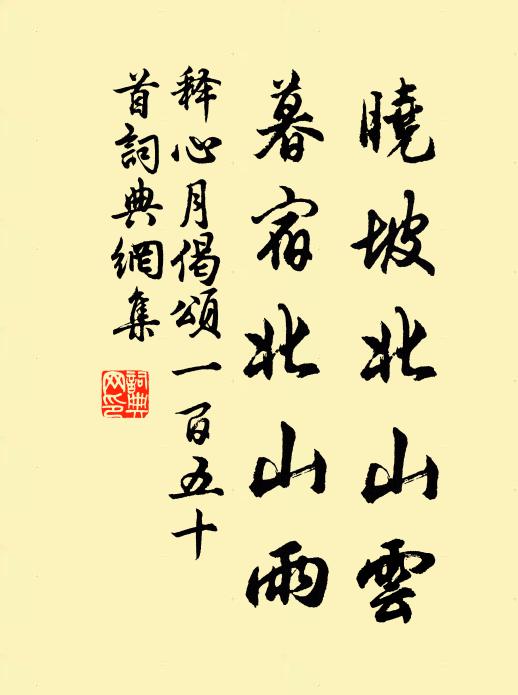 曉坡北山雲
暮宿北山雨
释心月偈頌一百五十
首詞典網集
詞典
网印